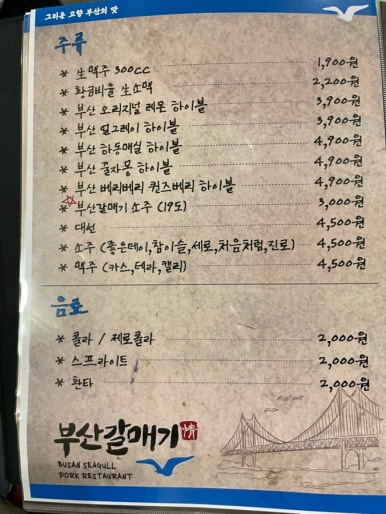 그리운 고향 부산의 맛
주류
* 生맥주 300cc 1,900원
* 황금비율 生소맥 2,200원
* 부산 오리지널 레몬 하이볼 3,900원
* 부산 얼그레이 하이볼 3,900원
* 부산 하동매실 하이볼 4,900원
* 부산 꿀자몽 하이볼 4,900원
* 부산 베리베리 퀸즈베리 하이볼 4,900원
* 부산갈매기 소주 (19도) 3,000원
* 대선 4,500원
* 소주 (좋은데이,참이슬,세로,처음처럼,진로) 4,500원
* 맥주 (카스,테라,켈리) 4,500원
음료
* 콜라 / 제로콜라 2,000원
* 스프라이트 2,000원
* 환타 2,000원
부산갈매기
BUSAN SEAGULL
PORK RESTAURANT